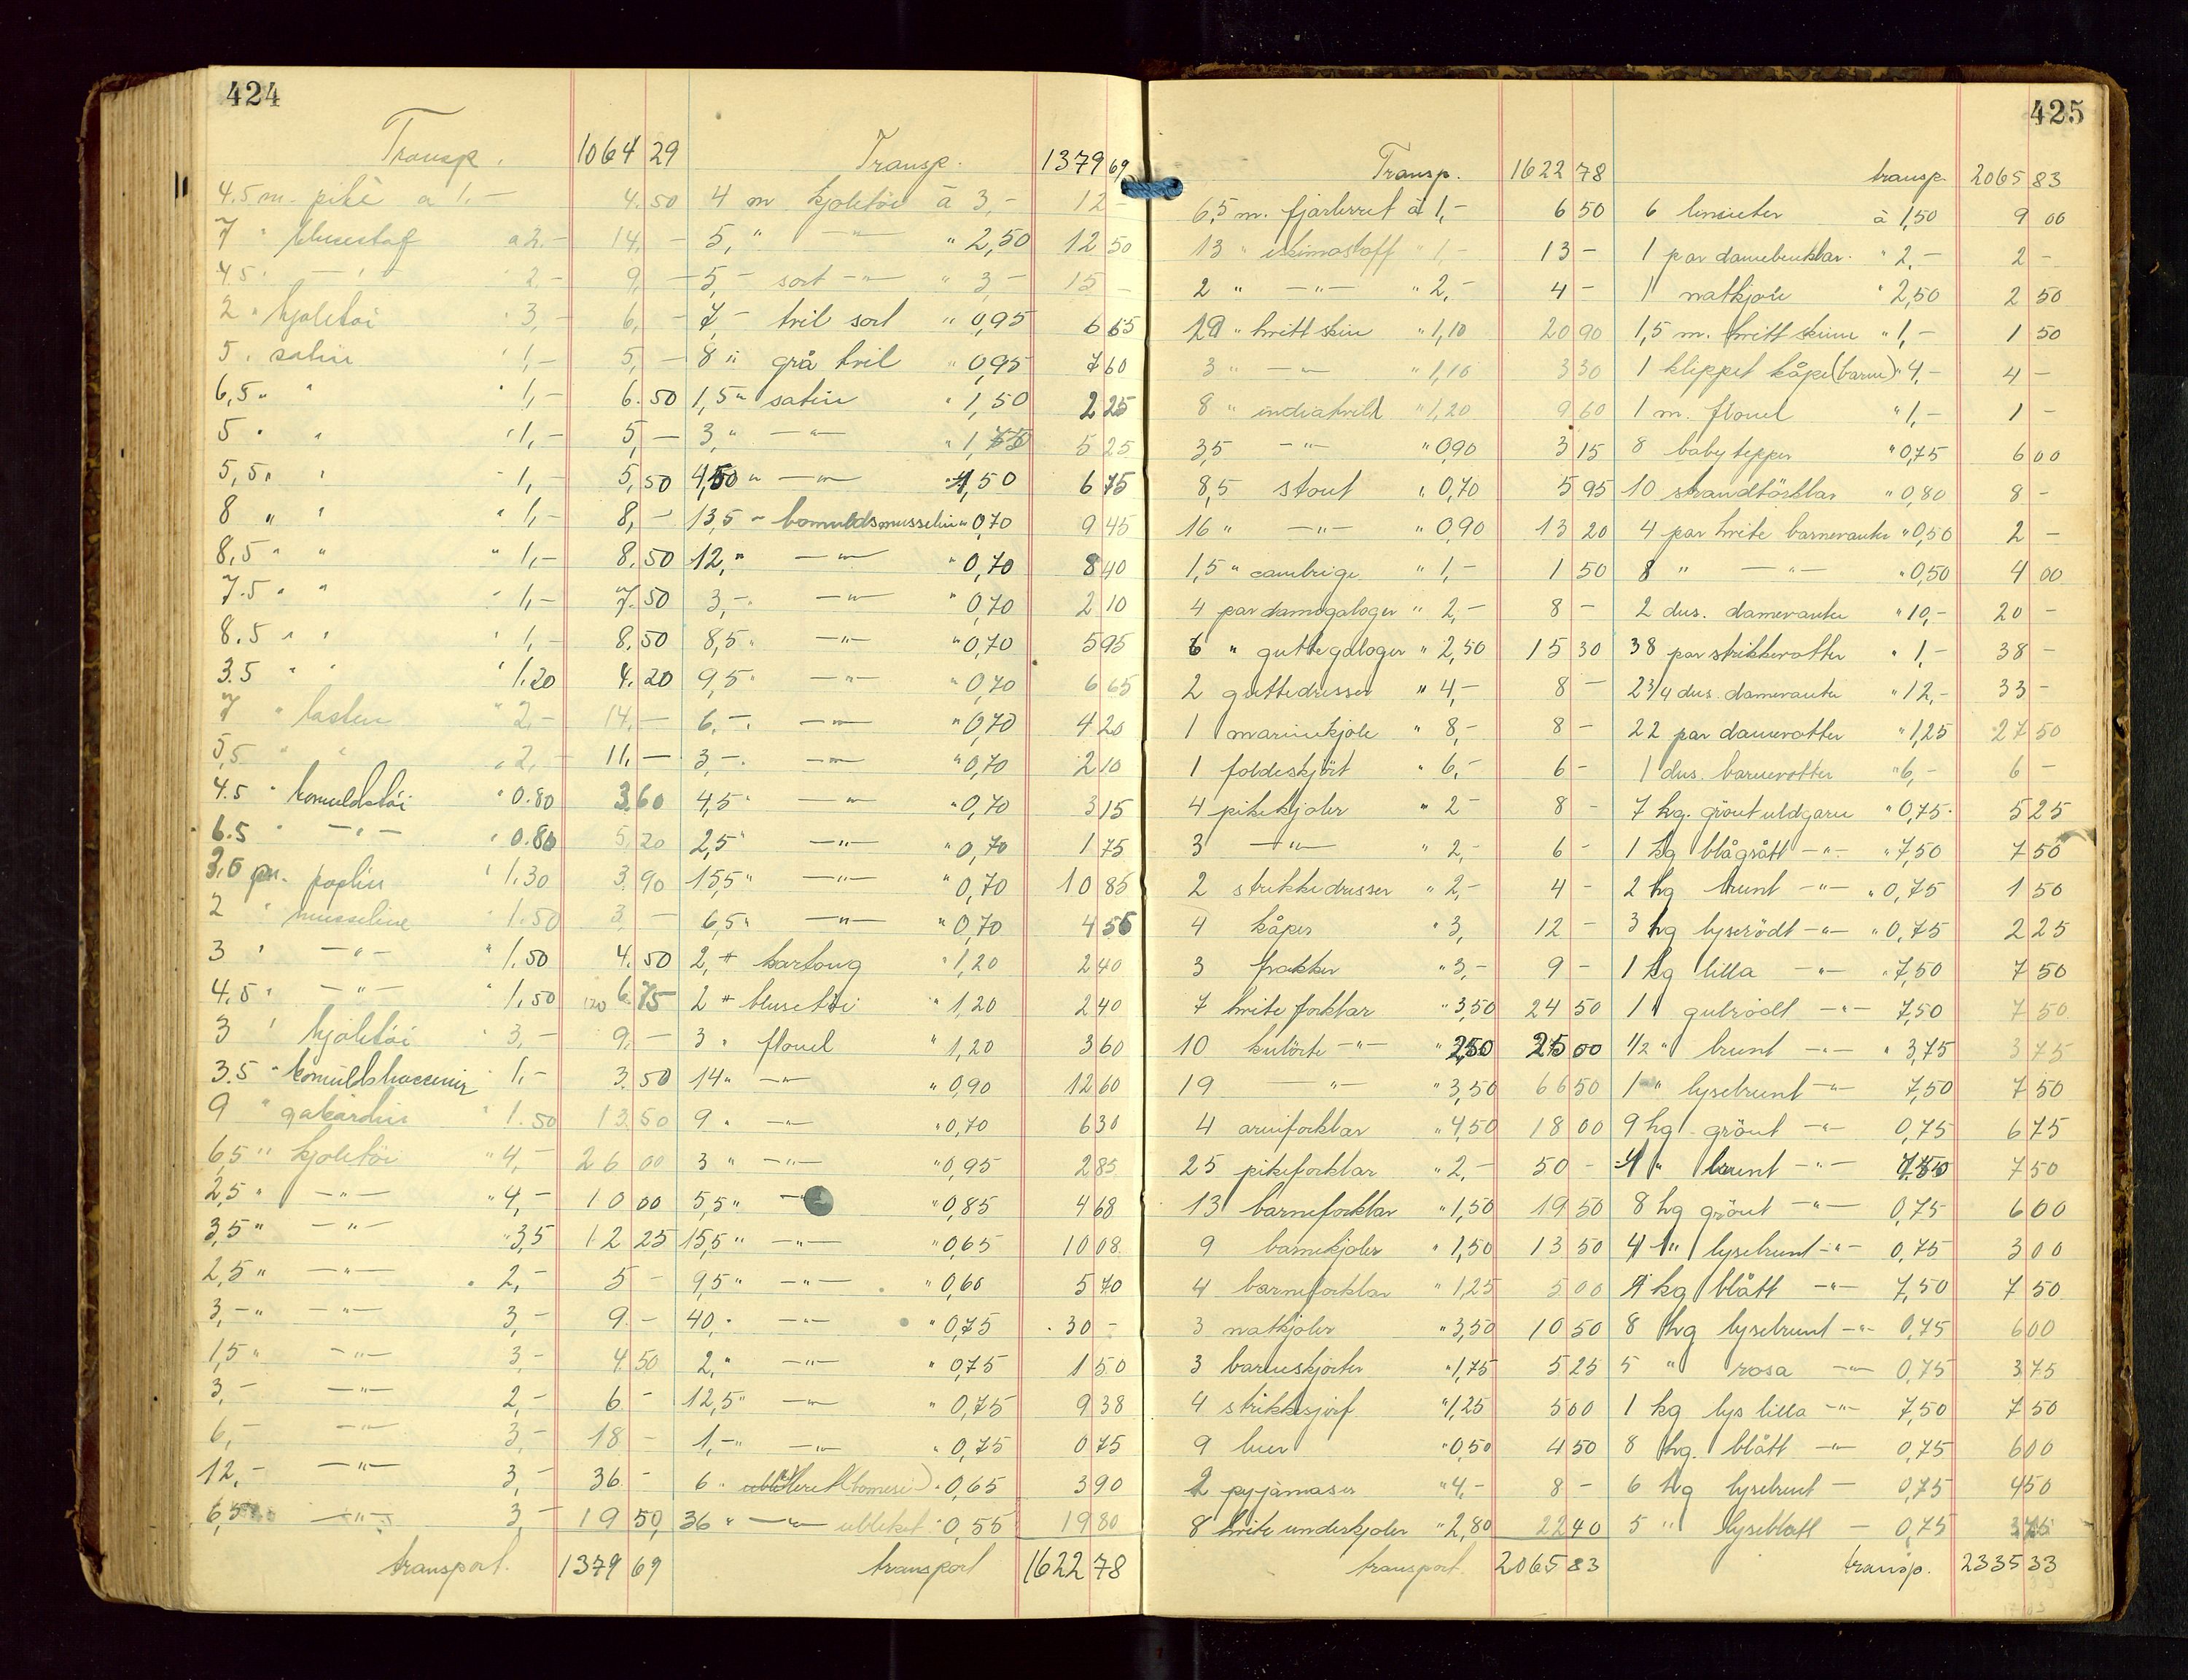 424
Transp. 1064 29
4.5 m. pikè a 1,- 4.50
7 " blusestof a 2,- 14,-
4.5 " -"- " 2,- 9,-
2 " kjoletöi " 3,- 6,-
5 " satin " 1,- 5,-
6,5 " " " 1,- 6.50
5 " " " 1,- 5,-
5,5 " " " 1,- 5,50
8 " " " 1,- 8,-
8,5 " " " 1,- 8.50
7.5 " " " 1,- 7.50
8.5 " " " 1,- 8.50
3.5 " " " 1.20 4.20
7 " lasten " 2,- 14,-
5,5 " " " 2,- 11,-
4.5 " bomuldstöi " 0.80 3.60
6.5 " -"- " 0.80 5.20
3,0 m. poplin " 1.30 3.90
2 " musseline " 1.50 3,-
3 " -"- " 1.50 4.50
4.5 " -"- " 1.50 6.75
3 " kjoletöi " 3,- 9,-
3.5 " 1,- 3.50
9 " gabardin " 1.50 13.50
6,5 " kjoletöi " 4,- 26 00
2,5 " -"- " 4,- 10 00
3,5 " -"- " 3,5 12 25
2,5 " -"- " 2,- 5 -
3,- " -"- 3,- 9 -
1,5 " -"- 3,- 4 50
3,- -"- 2,- 6 -
6,- -"- 3,- 18 -
12,- -"- 3,- 36 -
6,5 -"- 3,- 19 50
transport. 1379 69
Transp. 1379 69
4 m kjoletöi à 3,- 12 -
5, " -"- " 2,50 12 50
5,- sort -"- " 3,- 15 -
7,- tvil sort " 0,95 6 65
8 " grå tvil " 0,95 7 60
1,5 " satin " 1,50 2 25
3, " -"- " 1,75 5 25
4,50 " -"- " 1,50 6 75
13,5 - bomuldsmusselin " 0,70 9 45
12, " -"- " 0,70 8 40
3,-. -"- " 0,70 2 10
8,5 " -"- " 0,70 5 95
9,5 " -"- " 0,70 6 65
6,-. -"- " 0,70 4 20
3,-. -"- " 0,70 2 10
4,5 " -"- " 0,70 3 15
2,5 " -"- " 0,70 1 75
15,5 " -"- " 0,70 10 85
6,5 " -"- " 0,70 4 55
2, " kartong " 1,20 2 40
2 " blusetöi " 1,20 2 40
3 " flonel " 1,20 3 60
14 " -"- " 0,90 12 60
9 " -"- " 0,70 6 30
3 " -"- " 0,95 2 85
5,5 " -"- " 0,85 4 68
15,5 " -"- " 0,65 10 08
9,5 " -"- " 0,60 5 70
40, " -"- " 0,75 30 -
2, " -"- " 0,75 1 50
12,5 " -"- " 0,75 9 38
1,- " -"- " 0,75 0 75
6 " " 0,65 3 90
36 " -"- ubleket " 0,55 19 80
transport 1622 78
425
Transp. 1622 78
6,5 m. à 1,- 6 50
13 " " 1,- 13 -
2 " -"- " 2,- 4 -
19 " hvitt skin " 1,10 20 90
3 " -"- " 1,10 3 30
8 " indiatvill " 1,20 9 60
3,5 -"- " 0,90 3 15
8,5 stout " 0,70 5 95
16 " -"- " 0,90 13 20
1,5 " cambrige " 1,- 1 50
4 par damegaloger " 2,- 8 -
6 " guttegaloger " 2,50 15 30
2 guttedresser " 4,- 8 -
1 marinekjole " 8,- 8 -
1 foldeskjört " 6,- 6 -
4 pikekjoler " 2,- 8 -
3 -"- " 2,- 6 -
2 strikkedresser " 2,- 4 -
4 kåper " 3, 12 -
3 frakker " 3,- 9 -
7 hvite forklær " 3,50 24 50
10 kulörte -"- " 2,50 25 00
19 -"- " 3,50 66 50
4 " 4,50 18 00
25 pikeforklær " 2,- 50 -
13 barneforklær " 1,50 19 50
9 barnekjoler " 1,50 13 50
4 barneforklær " 1,25 5 00
3 natkjoler " 3,50 10 50
3 barneskjorter " 1,75 5 25
4 " 1,25 5 00
9 luer " 0,50 4 50
2 pyjamaser " 4,- 8 -
8 hvite underkjoler " 2,80 22 40
transport. 2065 83
transp. 2065 83
6 à 1,50 9 00
1 par damebenklær " 2,- 2 -
1 natkjole " 2,50 2 50
1,5 m. hvitt skinn " 1,- 1 50
1 klippet kåpe (barne) " 4,- 4 -
1 m. flonel " 1,- 1 -
8 babytepper " 0,75 6 00
10 strandtörklær " 0,80 8 -
4 par hvite barnevanter " 0,50 2 -
8 " -"- " 0,50 4 00
2 dus. damevanter " 10,- 20 -
38 par strikkevotter " 1,- 38 -
2 3/4 dus. damevanter " 12,- 33 -
22 par damevotter " 1,25 27 50
1 dus. barnevotter " 6,- 6 -
7 hg. grönt uldgarn " 0,75 5 25
1 kg blågrått -"- " 7,50 7 50
2 hg brunt -"- " 0,75 1 50
3 hg lyserödt -"- " 0,75 2 25
1 kg lilla -"- " 7,50 7 50
1 " gulrödt -"- 7,50 7 50
1/2 " brunt -"- " 3,75 3 75
1 " lysebrunt -"- 7,50 7 50
9 hg grönt -"- 0,75 6 75
1 " brunt -"- 7.50 7 50
8 hg grönt -"- 0,75 6 00
4 " lysebrunt -"- 0,75 3 00
1 kg blått -"- 7,50 7 50
8 hg lysebrunt -"- 0,75 6 00
5 " rosa -"- 0,75 3 75
1 kg lys lilla -"- 7,50 7 50
8 hg. blått -"- 0,75 6 00
6 hg lysebrunt - 0,75 4 50
5 " lyseblått - 0,75 3 75
transp. 2335 33